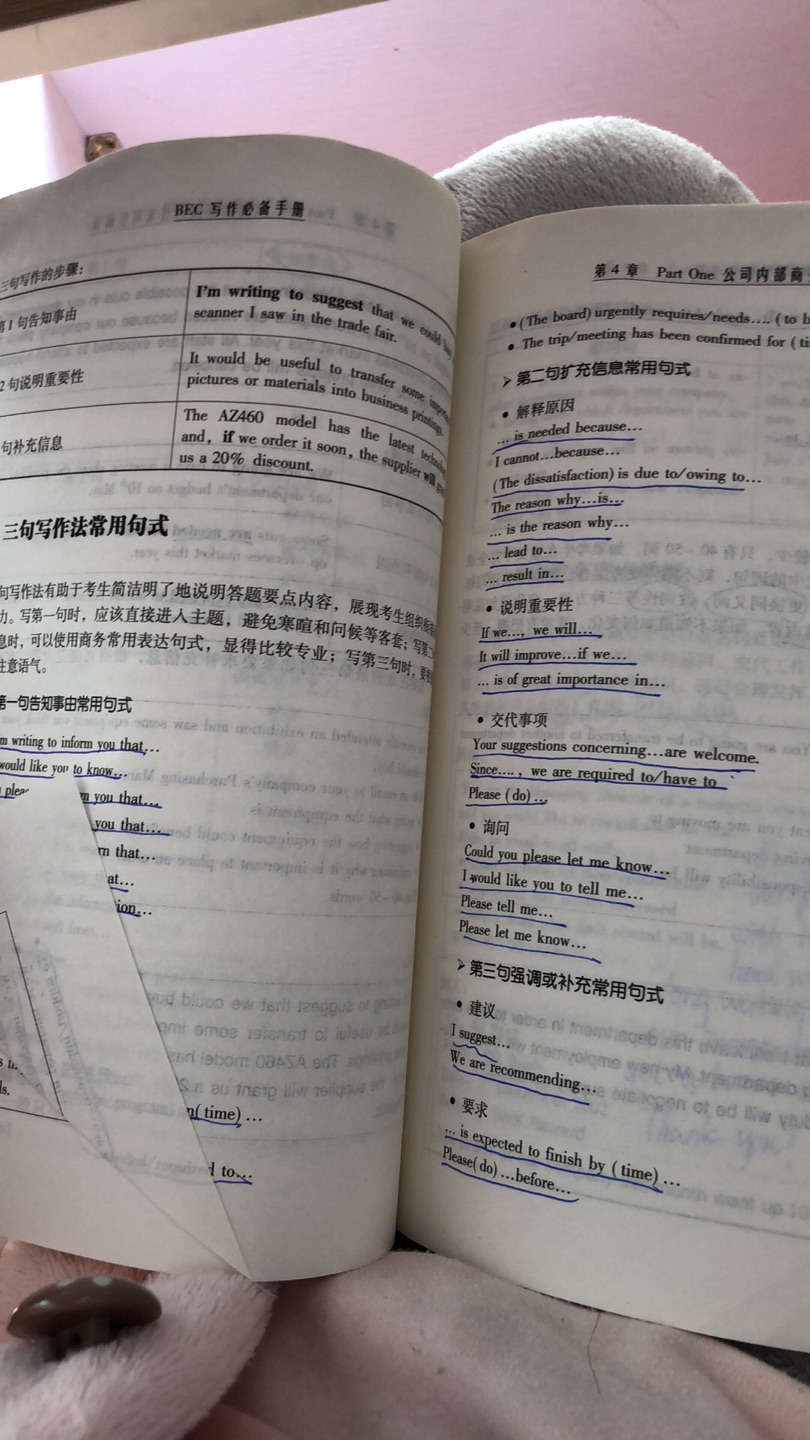 BEC 写作必备手册
三句写作的步骤：
第1句告知事由
I'm writing to suggest that we could buy
scanner I saw in the trade fair.
2句说明重要性
It would be useful to transfer some
pictures or materials into business printings.
句补充信息
The AZ460 model has the latest
and, if we order it soon, the supplier will
us a 20% discount.
三句写作法常用句式
句写作法有助于考生简洁明了地说明答题要点内容，展现考生组织
力。写第一句时，应该直接进入主题，避免寒暄和问候等客套；写第
息时，可以使用商务常用表达句式，显得比较专业；写第三句时，要
注意语气。
第一句告知事由常用句式
m writing to inform you that…
would like you to know…
m you that…
you that…
rn that…
at…
ion…
n(time)…
d to…
第4章 Part One 公司内部商
• (The board) urgently requires/needs…. (to b
• The trip/meeting has been confirmed for (ti
➤ 第二句扩充信息常用句式
• 解释原因
… is needed because…
I cannot…because…
(The dissatisfaction) is due to/owing to…
The reason why…is…
… is the reason why…
… lead to…
… result in…
• 说明重要性
If we…, we will…
It will improve…if we…
… is of great importance in…
• 交代事项
Your suggestions concerning…are welcome.
Since…., we are required to/have to
Please (do)…
• 询问
Could you please let me know…
I would like you to tell me…
Please tell me…
Please let me know…
➤ 第三句强调或补充常用句式
• 建议
I suggest…
We are recommending…
• 要求
… is expected to finish by (time)…
Please(do)…before…